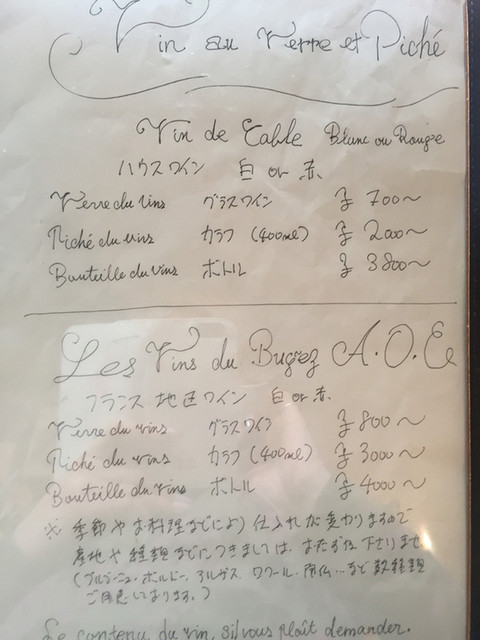 Vin au Verre et Piché
Vin de Table Blanc ou Rouge
ハウスワイン 白 or 赤
Verre du vins グラスワイン ¥ 700〜
Piché du vins カラフ (400ml) ¥ 2000〜
Bouteille du vins ボトル ¥ 3800〜
Les Vins du Bugez A.O.C
フランス 地区ワイン 白 or 赤
Verre du vins グラスワイン ¥ 800〜
Piché du vins カラフ (400ml) ¥ 3000〜
Bouteille du vins ボトル ¥ 4000〜
※ 季節やお料理などにより仕入れが変わりますので
産地や種類などにつきましては、おたずね下さりませ
(ブルゴーニュ・ボルドー、アルザス、ロワール、南仏…など数種類
ご用意しております。)
Le contenu du vin, s'il vous plaît demander.